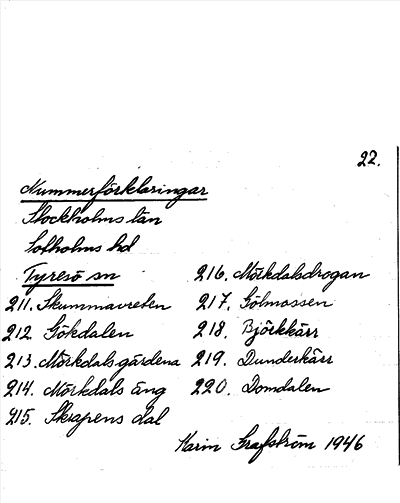 22.
Nummerförklaringar
Stockholms län
Sotholms hd
Tyresö sn
211. Skummavreten
212 Gökdalen
213. Mörkdalsgärdena
214. Mörkdals äng
215. Skrapens dal
216. Mörkdalsdrogan
217. Gölmossen
218. Björkkärr
219. Dunderkärr
220. Domdalen
Karin Grafström 1946